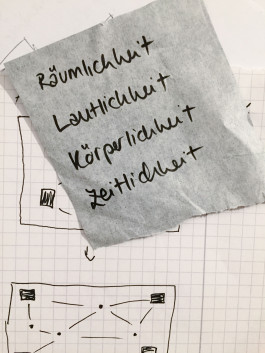 Räumlichkeit
Lautlichkeit
Körperlichkeit
Zeitlichkeit